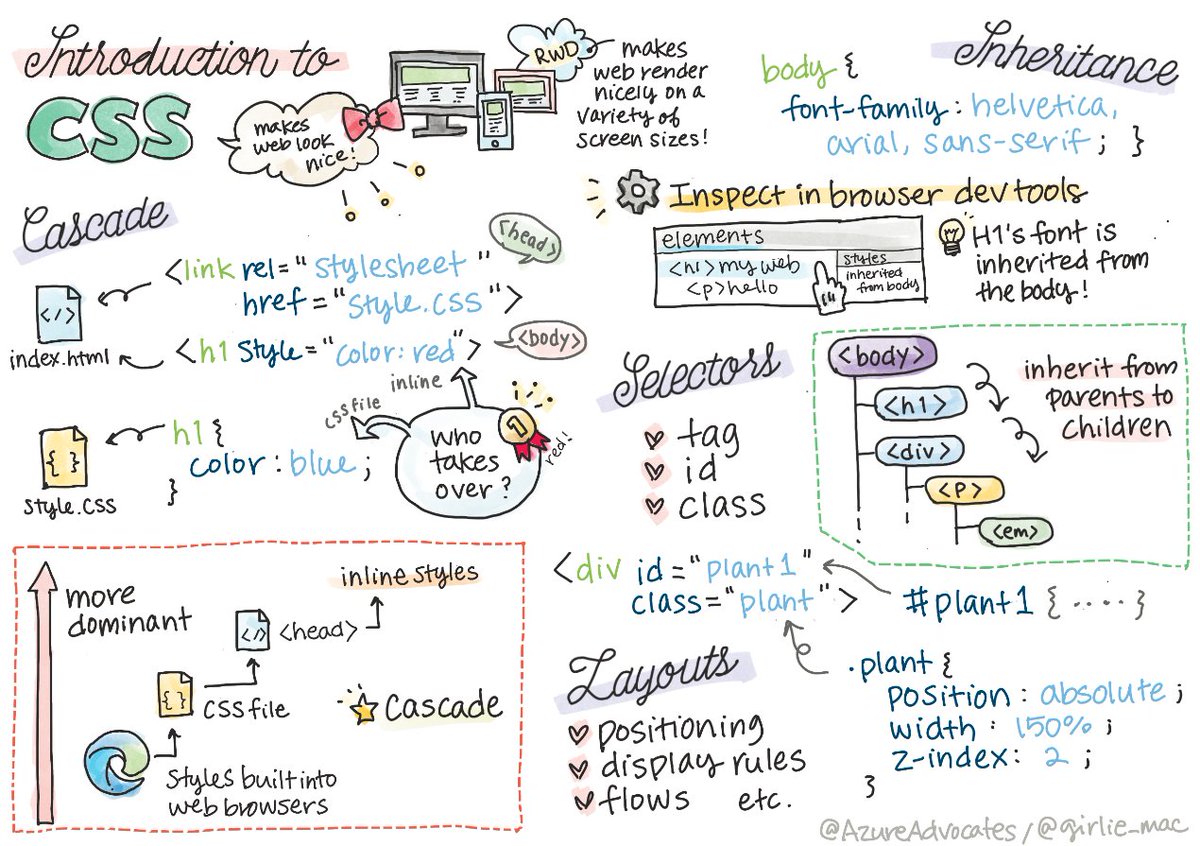 Introduction to
CSS
makes
web look
nice!
RWD
makes
web render
nicely on a
variety of
screen sizes!
Inheritance
body {
font-family: helvetica,
arial, sans-serif; }
Inspect in browser dev tools
elements
<h1>my web
<p>hello
styles
inherited
from body
H1's font is
inherited from
the body!
Cascade
<head>
<link rel="stylesheet"
href="style.css">
</>
index.html
<h1 style="color: red">
<body>
inline
css file
who
takes
over?
1
red!
h1 {
color: blue;
}
{ }
style.css
Selectors
tag
id
class
<body>
<h1>
<div>
<p>
<em>
inherit from
parents to
children
<div id="plant1"
class="plant">
#plant1 {....}
.plant {
position: absolute;
width: 150%;
z-index: 2;
}
more
dominant
inline styles
</>
<head>
{ }
CSS file
Cascade
Styles built into
web browsers
Layouts
positioning
display rules
flows etc.
@AzureAdvocates/@girlie_mac